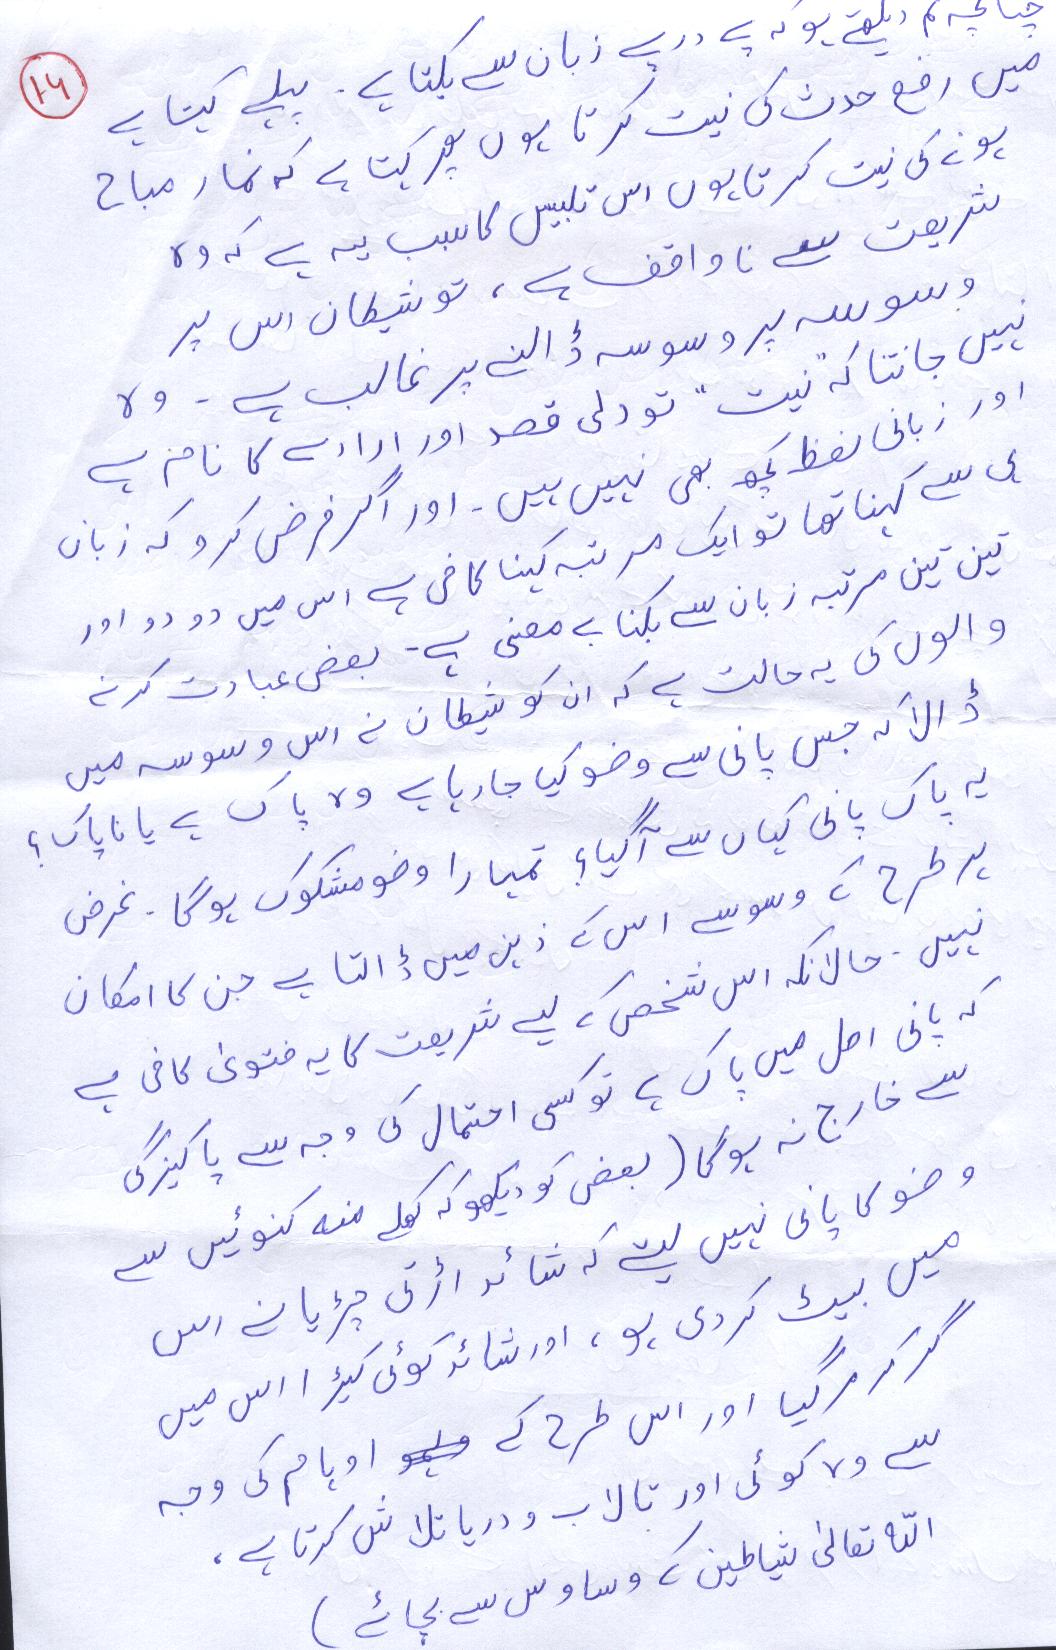 ۲۶
چنانچہ تم دیکھتے ہو کہ پے در پے زبان سے بکتا ہے ۔ پہلے کہتا ہے
میں رفع حدث کی نیت کرتا ہوں پھر کہتا ہے کہ نماز مباح
ہونے کی نیت کرتا ہوں اس تلبیس کا سبب یہ ہے کہ وہ
شریعت سے ناواقف ہے ، تو شیطان اس پر
وسوسہ پر وسوسہ ڈالنے پر غالب ہے ۔ وہ
نہیں جانتا کہ "نیت" تو دلی قصد اور ارادے کا نام ہے
اور زبانی لفظ کچھ بھی نہیں ہیں ۔ اور اگر فرض کرو کہ زبان
ہی سے کہنا تھا تو ایک مرتبہ کہنا کافی ہے اس میں دو دو اور
تین تین مرتبہ زبان سے بکنا بے معنی ہے ۔ بعض عبادت کرنے
والوں کی یہ حالت ہے کہ ان کو شیطان نے اس وسوسہ میں
ڈالا کہ جس پانی سے وضو کیا جا رہا ہے وہ پاک ہے یا ناپاک ؟
یہ پاک پانی کہاں سے آگیا ؟ تمہارا وضو مشکوک ہوگا ۔ غرض
ہر طرح کے وسوسے اس کے ذہن میں ڈالتا ہے جن کا امکان
نہیں ۔ حالانکہ اس شخص کے لیے شریعت کا یہ فتویٰ کافی ہے
کہ پانی اصل میں پاک ہے تو کسی احتمال کی وجہ سے پاکیزگی
سے خارج نہ ہوگا ( بعض کو دیکھو کہ کھلے منہ کنوئیں سے
وضو کا پانی نہیں لیتے کہ شائد اڑتی چڑیا نے اس
میں بیٹ کر دی ہو ، اور شائد کوئی کیڑا اس میں
گر کر مر گیا اور اس طرح کے اوہام کی وجہ
سے وہ کوئی اور تالاب و دریا تلاش کرتا ہے ،
اللہ تعالیٰ شیاطین کے وساوس سے بچائے )